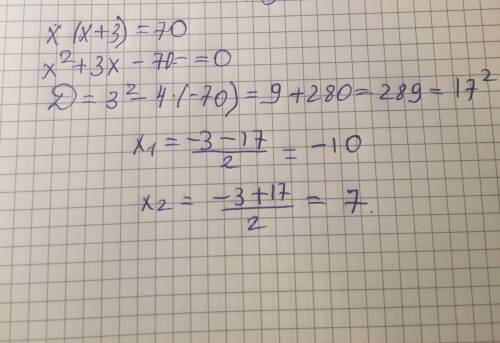 x (x+3) = 70
x² + 3x - 70 = 0
D = 3² - 4·(-70) = 9 + 280 = 289 = 17²
x₁ = (-3-17)/2 = -10
x₂ = (-3+17)/2 = 7.